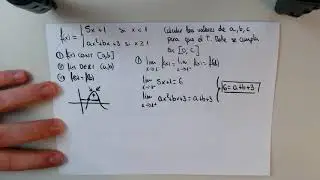 f(x) = { 5x+1 si x < 1
ax²+bx+3 si x ≥ 1
Calcular los valores de a, b, c
para que el T. Rolle se cumpla
en [0, c]
① f(x) cont [a,b]
② f(x) Deri (a,b)
③ f(a) = f(b)
① lim x→1⁻ f(x) = lim x→1⁺ f(x) = f(1)
lim x→1⁻ 5x+1 = 6
lim x→1⁺ ax²+bx+3 = a+b+3
6 = a+b+3